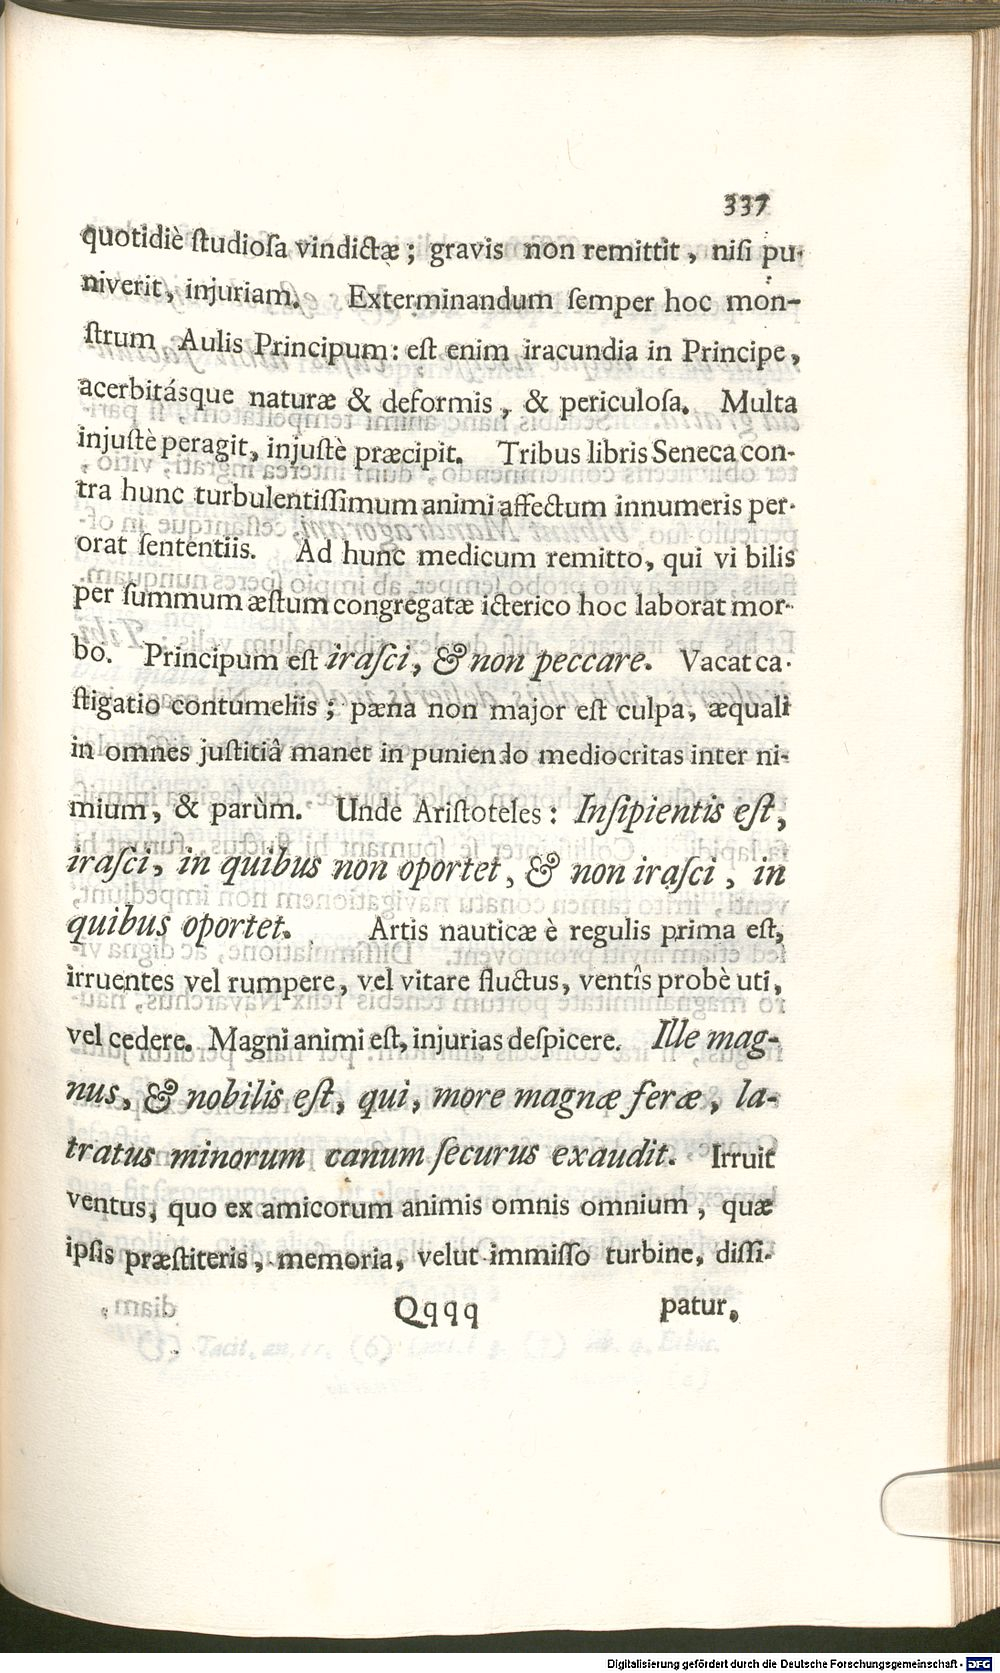 337
quotidiè ſtudioſa vindictæ; gravis non remittit, niſi pu-
niverit, injuriam. Exterminandum ſemper hoc mon-
ſtrum Aulis Principum: eſt enim iracundia in Principe,
acerbitásque naturæ & deformis, & periculoſa. Multa
injuſtè peragit, injuſtè præcipit. Tribus libris Seneca con-
tra hunc turbulentiſſimum animi affectum innumeris per-
orat ſententiis. Ad hunc medicum remitto, qui vi bilis
per ſummum æſtum congregatæ icterico hoc laborat mor-
bo. Principum eſt iraſci, & non peccare. Vacat ca-
ſtigatio contumeliis; pæna non major eſt culpa, æquali
in omnes juſtitiâ manet in puniendo mediocritas inter ni-
mium, & parùm. Unde Ariſtoteles: Inſipientis eſt,
iraſci, in quibus non oportet, & non iraſci, in
quibus oportet. Artis nauticæ è regulis prima eſt,
irruentes vel rumpere, vel vitare fluctus, ventîs probè uti,
vel cedere. Magni animi eſt, injurias deſpicere. Ille mag-
nus, & nobilis eſt, qui, more magnæ feræ, la-
tratus minorum canum ſecurus exaudit. Irruit
ventus, quo ex amicorum animis omnis omnium, quæ
ipſis præſtiteris, memoria, velut immiſſo turbine, diſſi-
Qqqq patur,
Digitalisierung gefördert durch die Deutsche Forschungsgemeinschaft - DFG